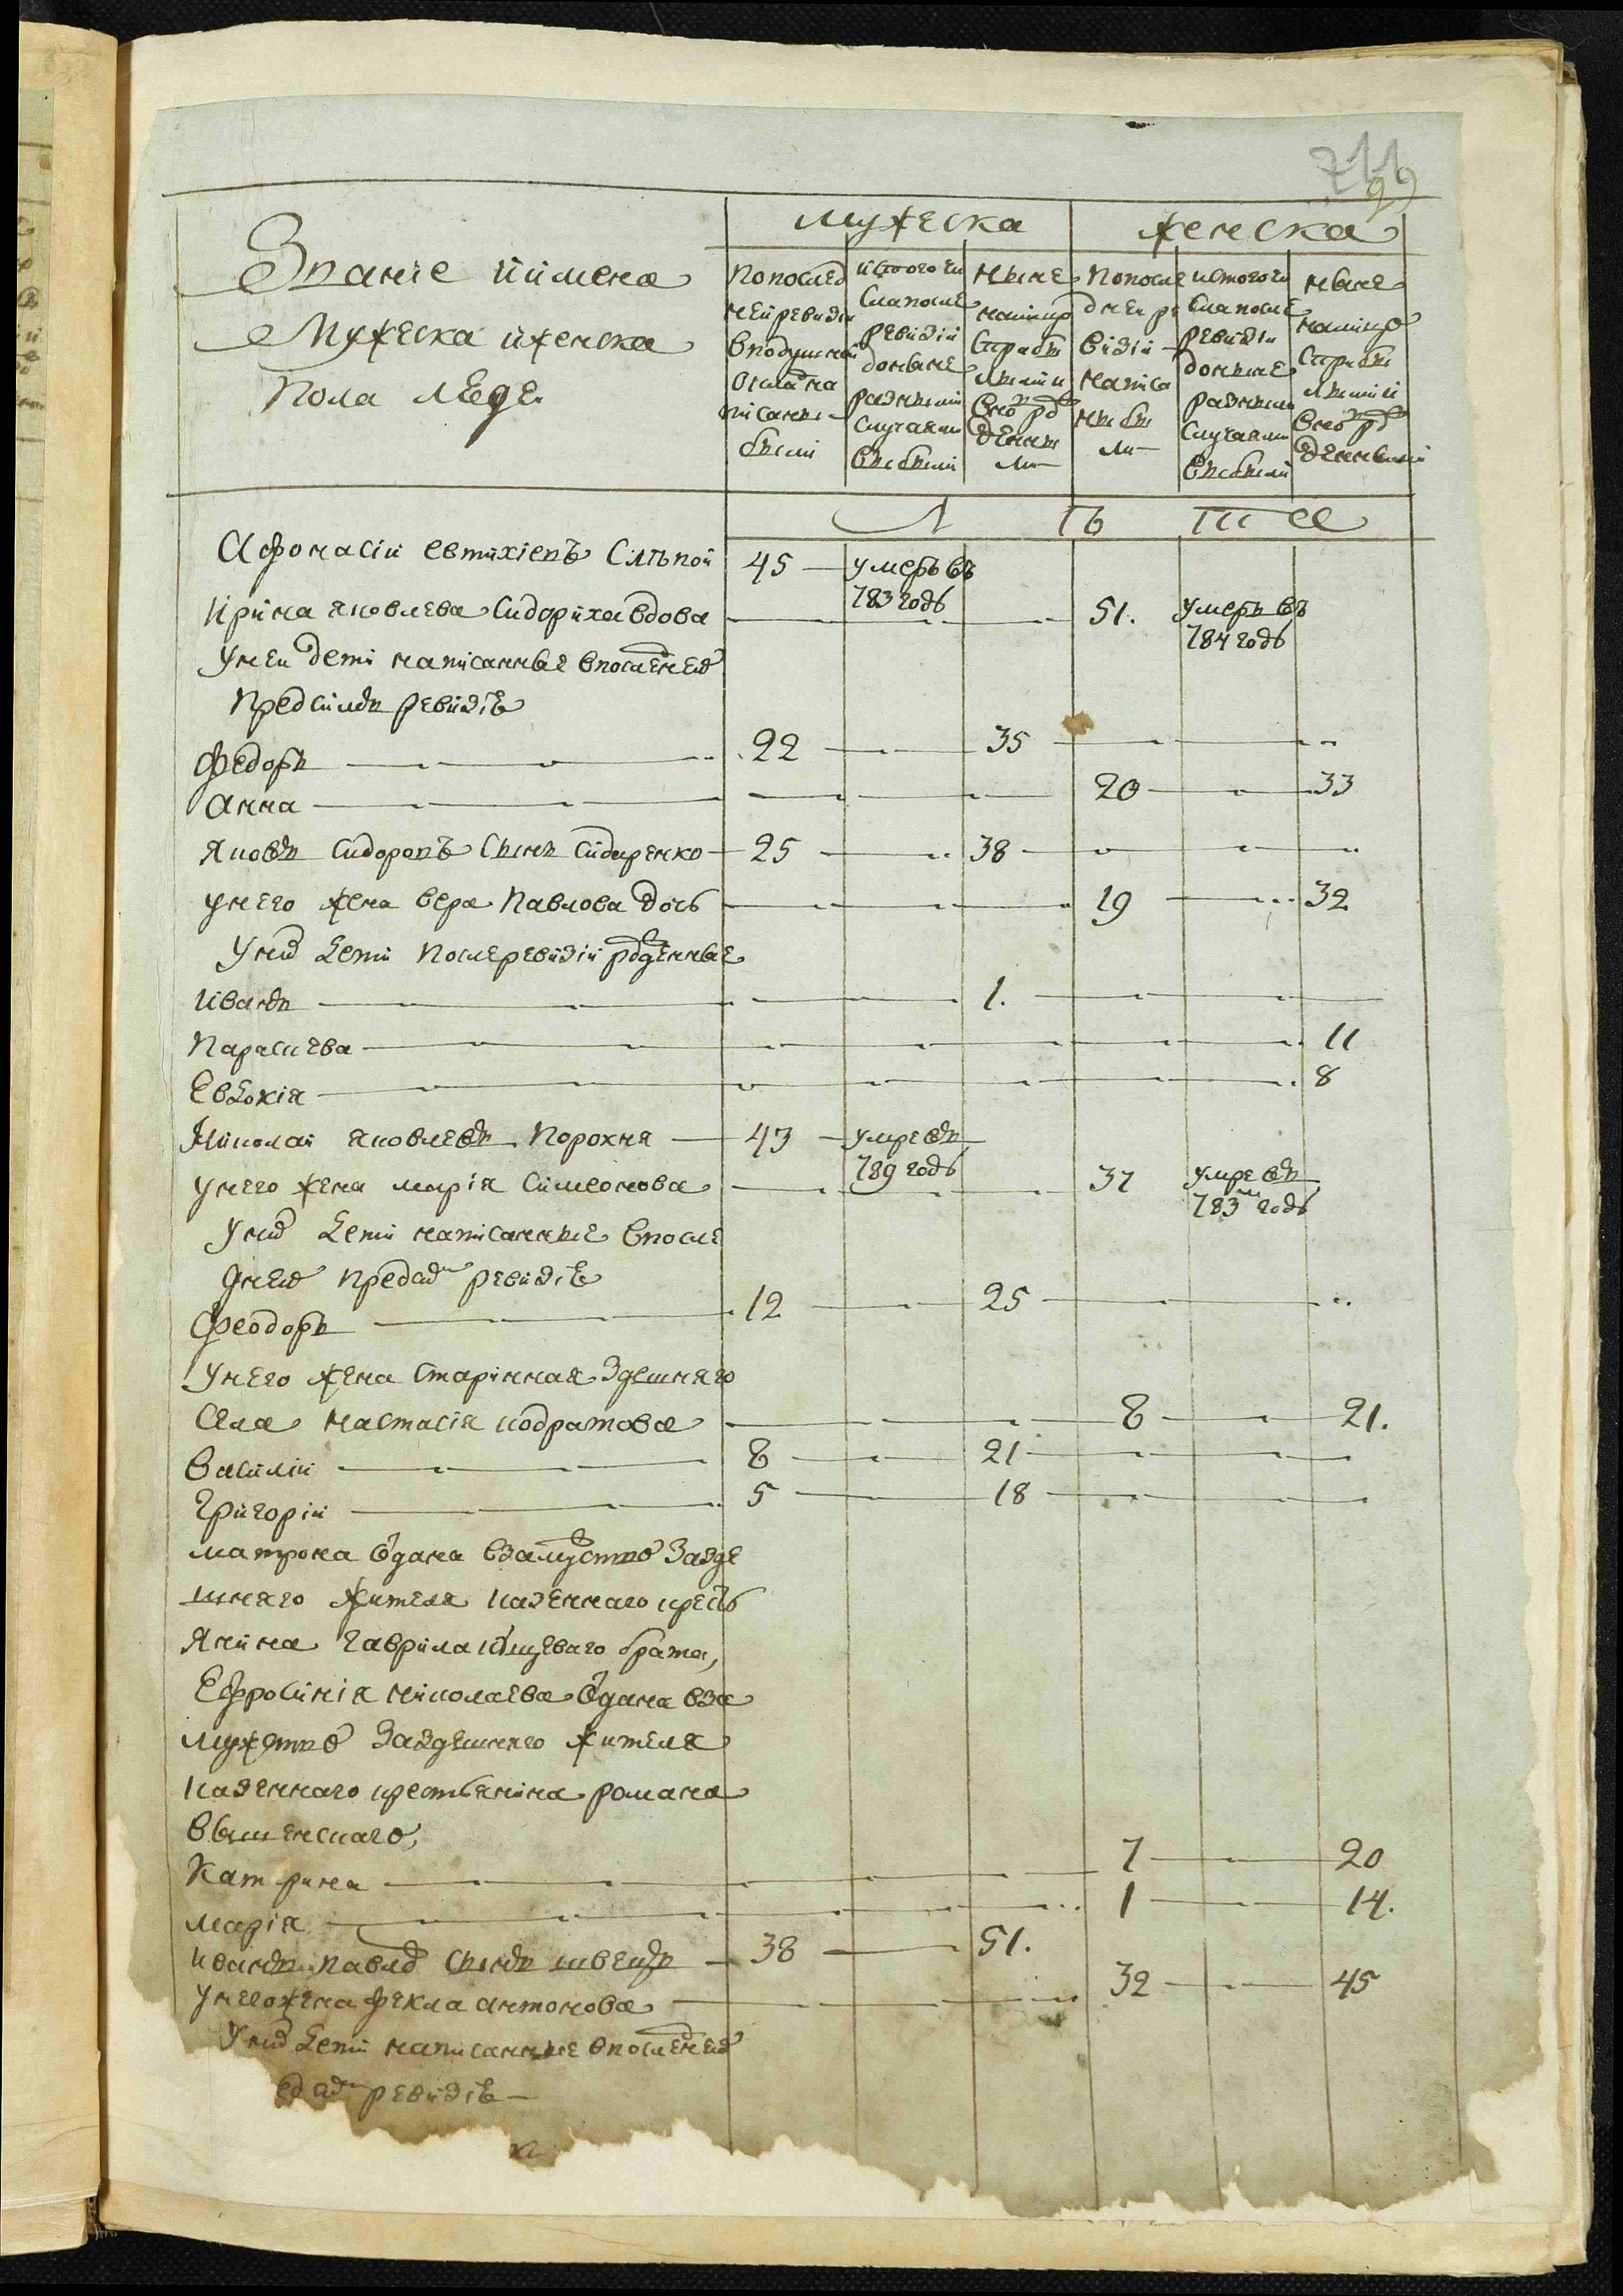 711
99
Званіе и имена
Мужеска и женска
Пола людей
мужеска
женска
По послед
ней ревизіи
в подушной
оклад на
писанны
были
ис того чи
сла после
ревизіи
до ныне
разными
случаями
выбыли
ныне
на лицо
с прибы
лыми и
вновь рож
денны
ми
По после
дней ре
визіи
написа
ны бы
ли
ис того чи
сла после
ревизіи
до ныне
разными
случаями
выбыли
ныне
на лицо
с прибы
лыми и
вновь рож
денными
Л ѣ т а
Афонасій Евтихіевъ Слѣпой 45 умеръ въ
783 годѣ
Ирина Яковлева Сидориха вдова 51. умерла въ
784 годѣ
У ней дети написанные в последней
Пред симъ ревизіѣ
Федоръ 22 35
Анна 20 33
Яковъ Сидоровъ сынъ Сидоренко 25 38
у него жена Вера Павлова дочь 19 32
У них дети после ревизіи рожденные
Иванъ 1.
Парасиева 11
Евдокія 8
Николай Яковлевъ Порохня 43 умре въ
789 годѣ
у него жена Марія Симеонова 37 умре въ
783м годѣ
У них дети написанные в после
дней пред сим ревизіѣ
Феодоръ 12 25
У него жена старинная здешняго
села Настасія Кодратова 8 21.
Василій 8 21
Григорій 5 18
Матрона отдана в замужство за зде
шняго жителя казеннаго кресть
янина Гаврила брата,
Ефросинія Николаева отдана в за
мужство за здешняго жителя
казеннаго крестьянина Романа
Вышенскаго,
Катрина 7 20
Марія 1 14.
Иванъ Павлов сынъ Швецъ 38 51.
У него жена Фекла Антонова 32 45
У них дети написанные в последней
ед сим ревизіѣ